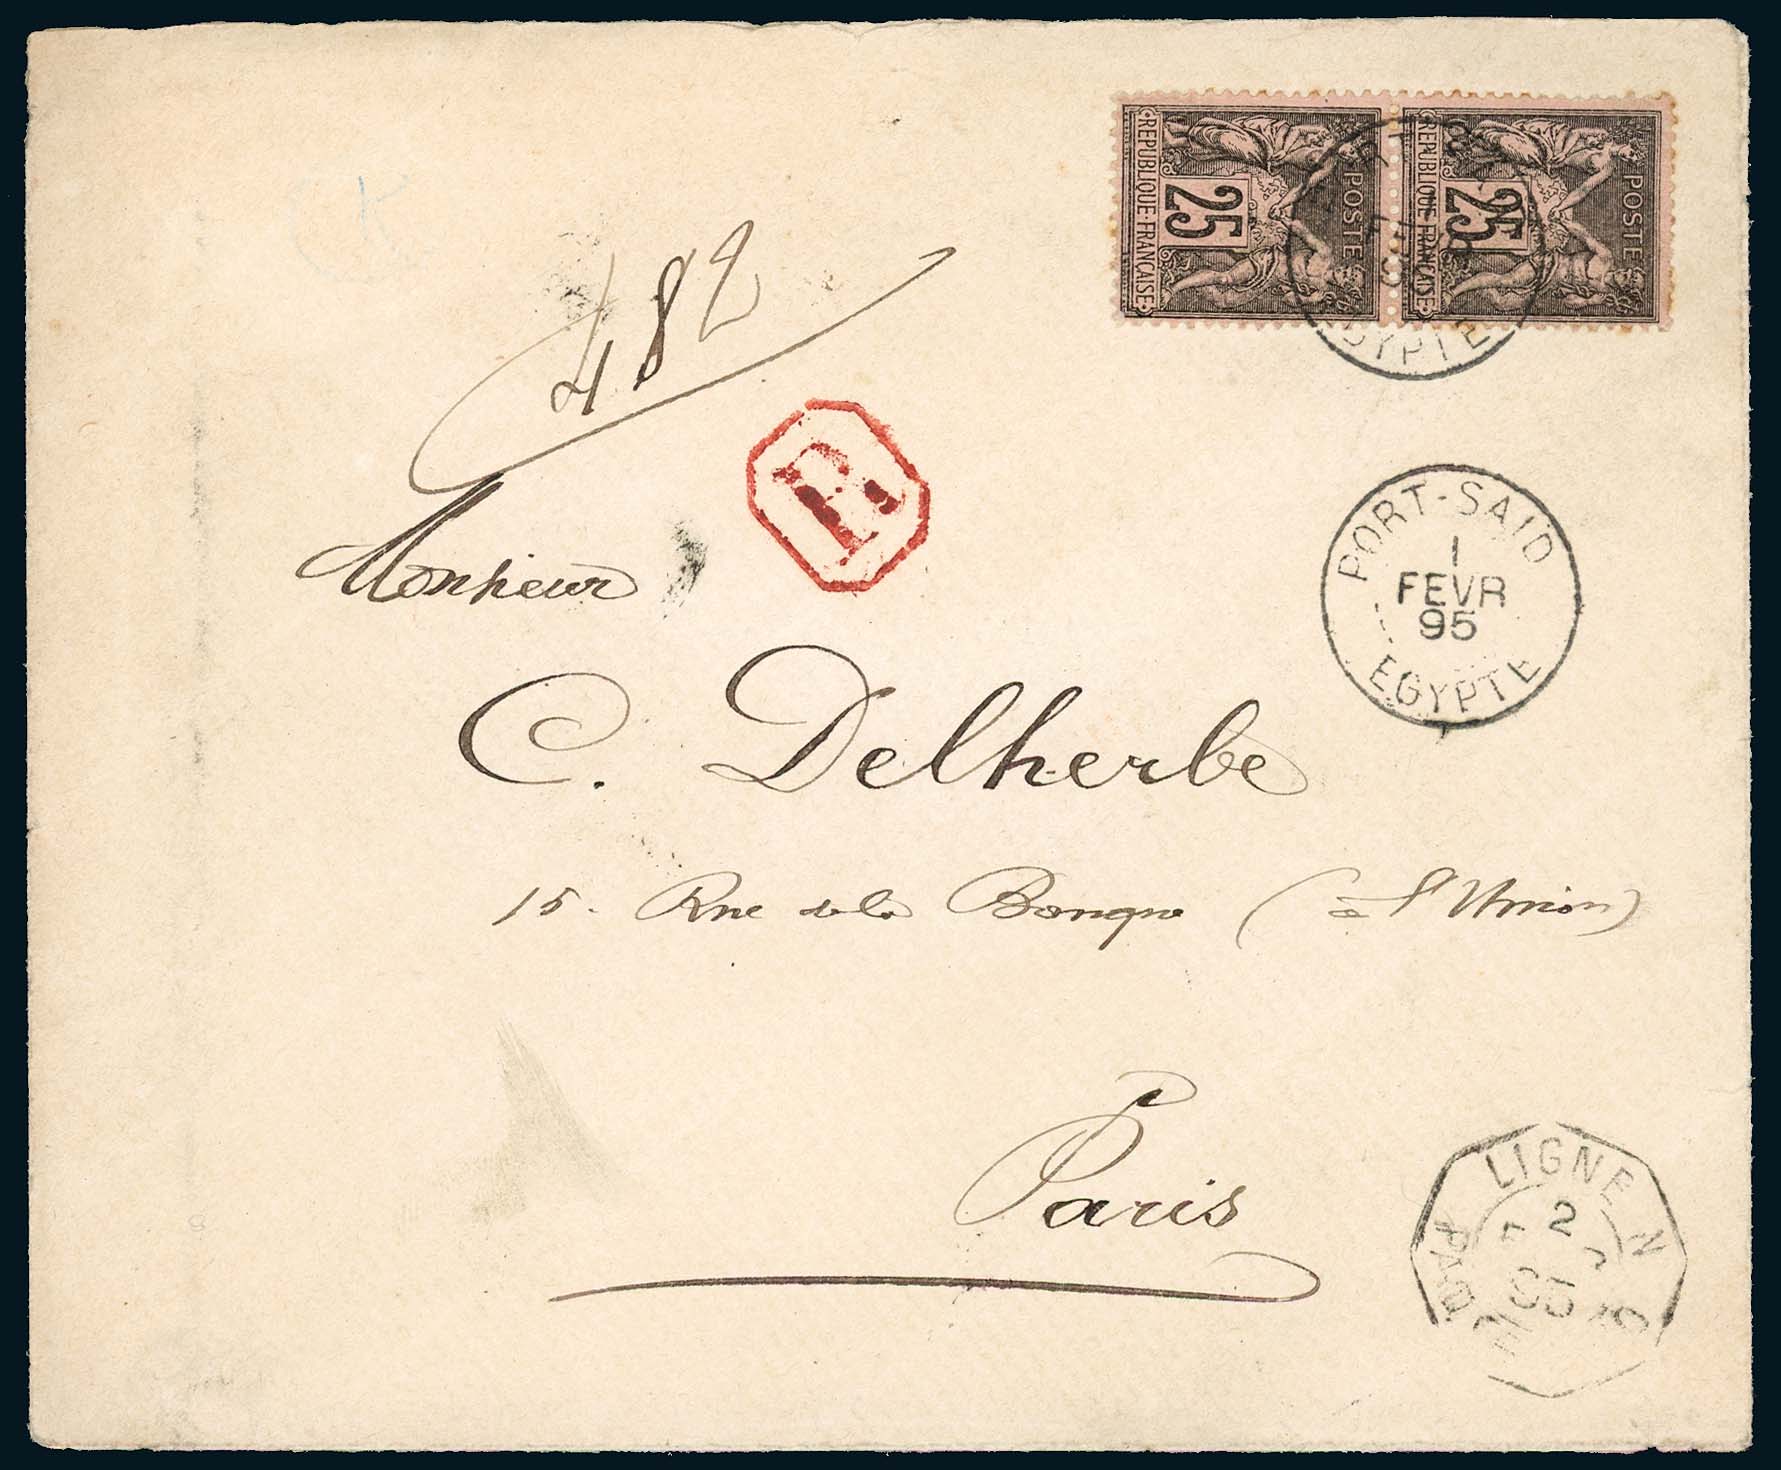 REPUBLIQUE FRANCAISE 25 POSTE
REPUBLIQUE FRANCAISE 25 POSTE
EGYPTE
482
R
PORT-SAID
1
FEVR
95
EGYPTE
Monsieur
C. Delherbe
15. Rue de la Banque (à l'Union)
Paris
LIGNE N
2
95
PAQ